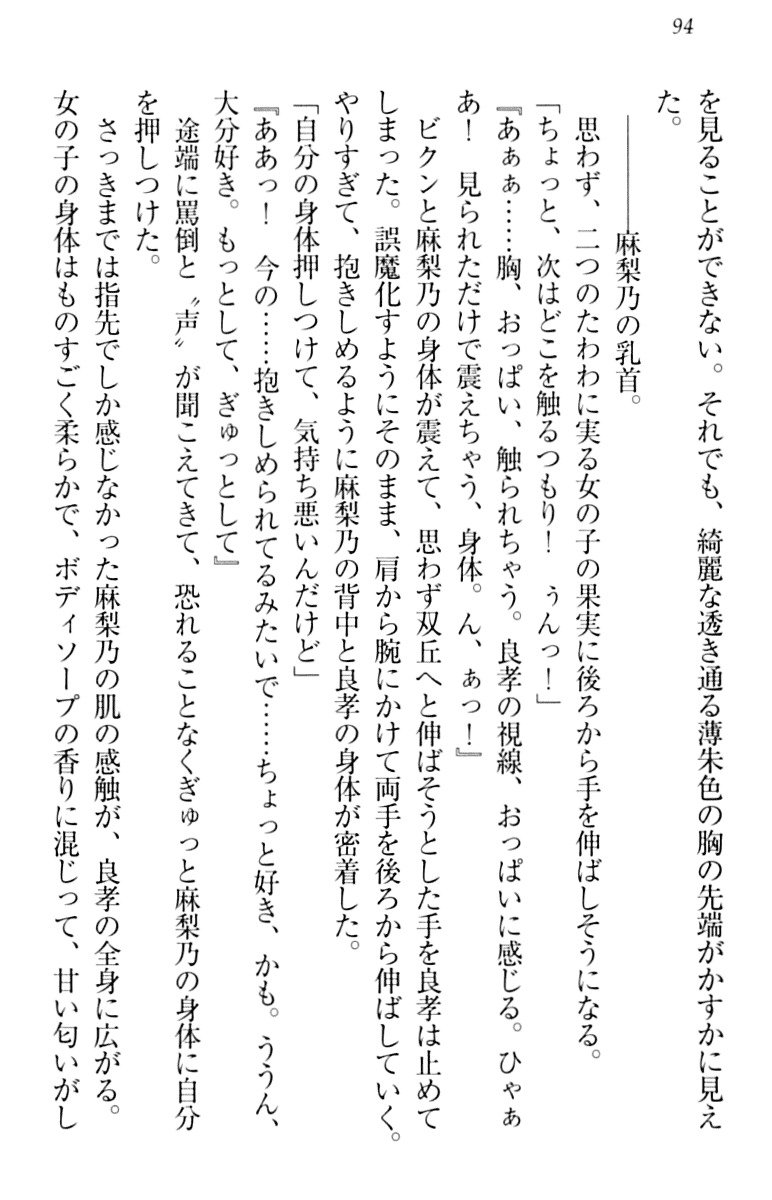 94
を見ることができない。それでも、綺麗な透き通る薄朱色の胸の先端がかすかに見え
た。
―――麻梨乃の乳首。
思わず、二つのたわわに実る女の子の果実に後ろから手を伸ばしそうになる。
「ちょっと、次はどこを触るつもり！　ぅんっ！」
『あぁぁ……胸、おっぱい、触られちゃう。良孝の視線、おっぱいに感じる。ひゃぁ
あ！　見られただけで震えちゃう、身体。ん、ぁっ！』
ビクンと麻梨乃の身体が震えて、思わず双丘へと伸ばそうとした手を良孝は止めて
しまった。誤魔化すようにそのまま、肩から腕にかけて両手を後ろから伸ばしていく。
やりすぎて、抱きしめるように麻梨乃の背中と良孝の身体が密着した。
「自分の身体押しつけて、気持ち悪いんだけど」
『ああっ！　今の……抱きしめられてるみたいで……ちょっと好き、かも。ううん、
大分好き。もっとして、ぎゅっとして』
途端に罵倒と〝声〟が聞こえてきて、恐れることなくぎゅっと麻梨乃の身体に自分
を押しつけた。
さっきまでは指先でしか感じなかった麻梨乃の肌の感触が、良孝の全身に広がる。
女の子の身体はものすごく柔らかで、ボディソープの香りに混じって、甘い匂いがし